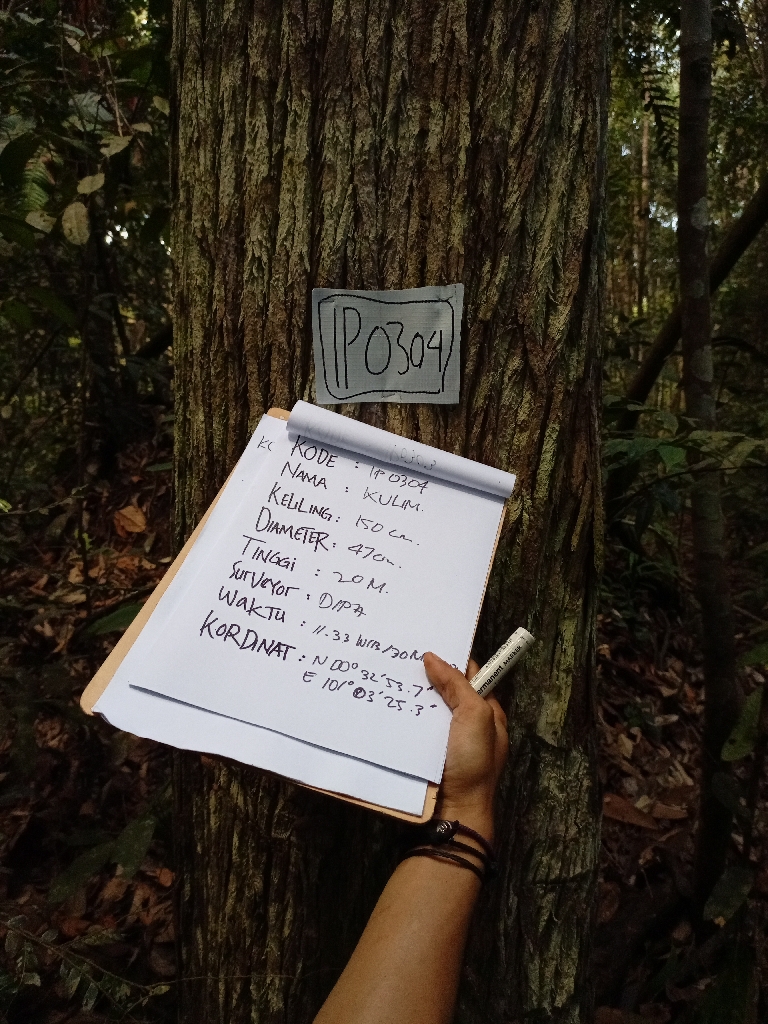 IP0304
KODE : IP0304
NAMA : KULIM.
KELILING : 150 cm.
DIAMETER : 47cm.
TINGGI : 20 M.
SURVEYOR : DIPA
WAKTU : 11.33 WIB/30
KORDINAT : N 00° 32' 53.7"
E 101° 03' 25.3"
PERMANENT MARKER